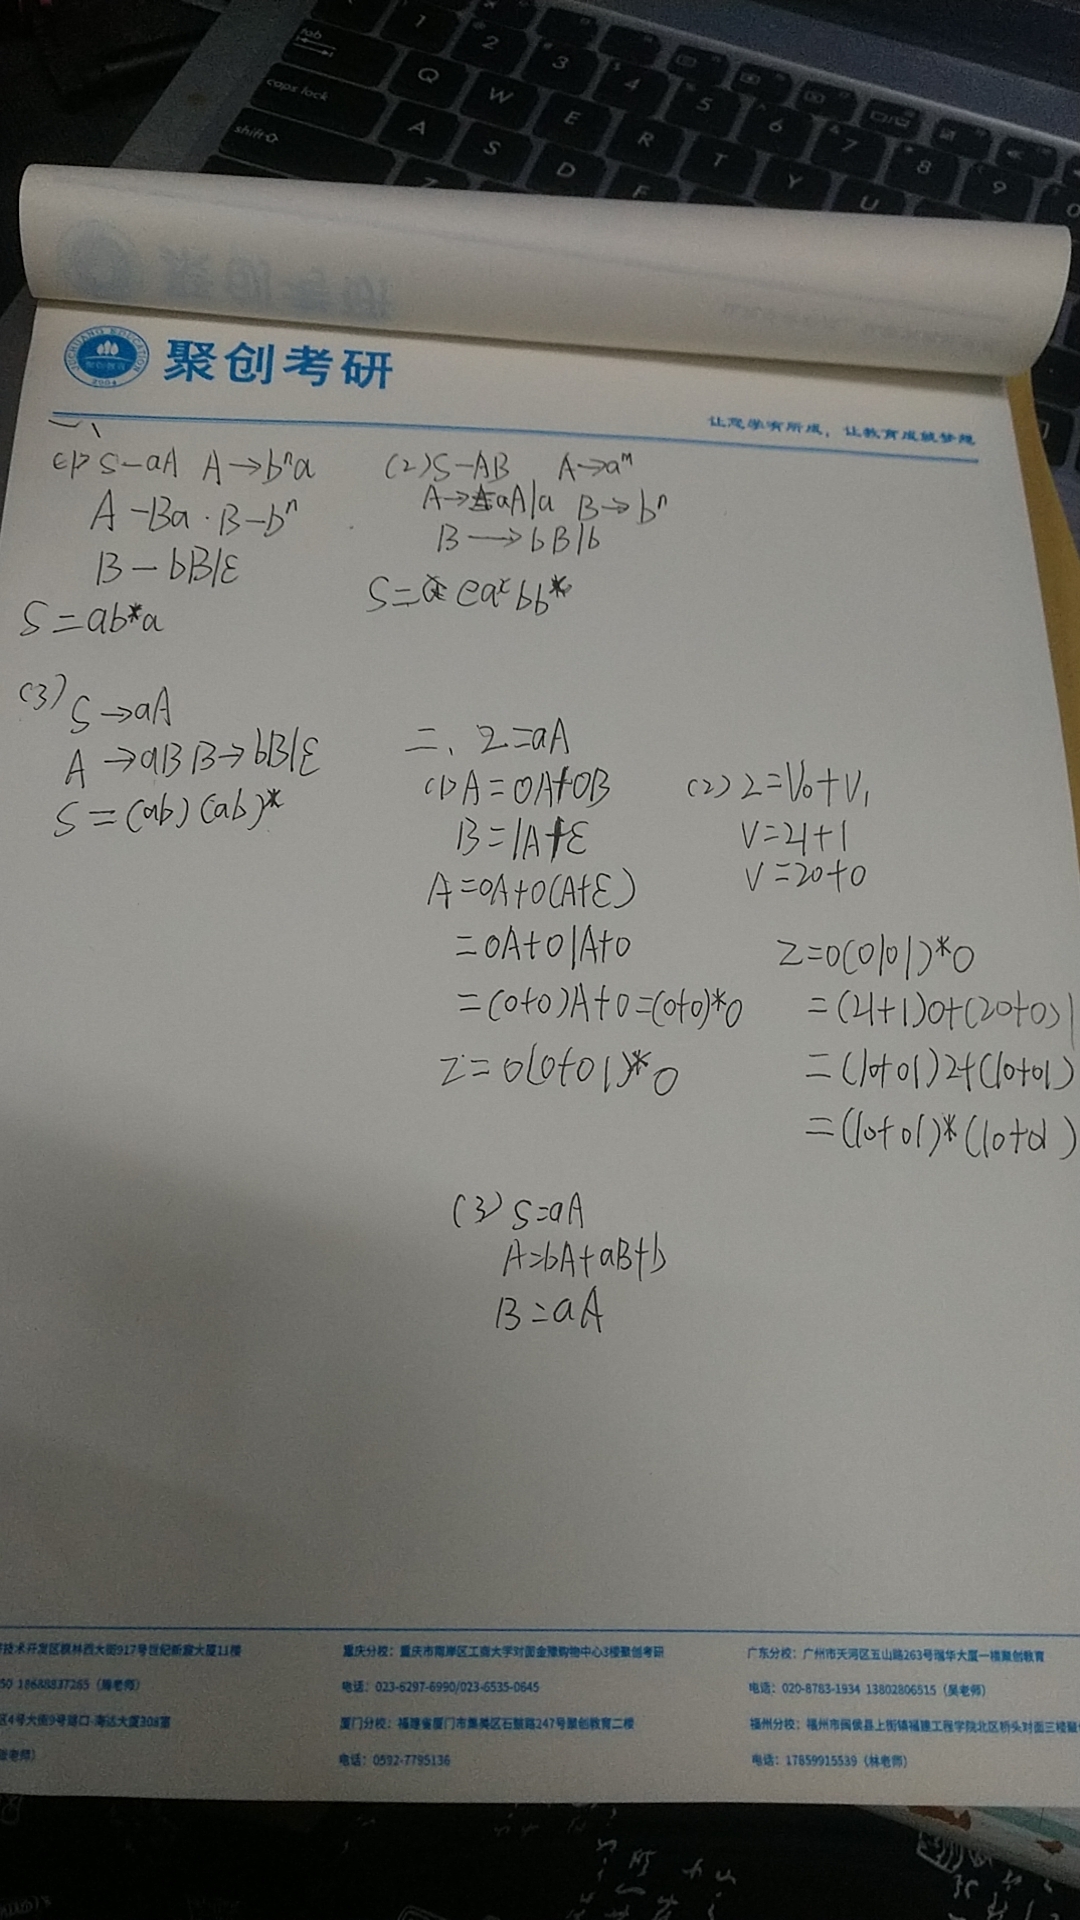 聚创考研
让您学有所成，让教育成就梦想
一、
(1) S-aA A→bⁿa
A-Ba·B-bⁿ
B-bB|ε
S=ab*a
(2) S-AB A→aᵐ
A→aA|a B→bⁿ
B→bB|b
bb*
(3) S→aA
A→aB B→bB|ε
S=(ab)(ab)*
二、Z=aA
(1) A=0A+0B
B=1A+ε
A=0A+0(A+ε)
=0A+01A+0
=(0+0)A+0=(0+0)*0
Z=0(0+01)*0
(2) Z=V0+V1
V=Z1+1
V=Z0+0
Z=0(0|01)*0
=(Z1+1)0+(Z0+0)1
=(10+01)Z+(10+01)
=(10+01)*(10+01)
(3) S=aA
A=bA+aB+b
B=aA
技术开发区枫林西大街917号世纪新宸大厦11楼
重庆分校：重庆市南岸区工商大学对面金臻购物中心3楼聚创考研
电话：023-6297-6990/023-6535-0645
厦门分校：福建省厦门市集美区石鼓路247号聚创教育二楼
电话：0592-7795136
广东分校：广州市天河区五山路263号瑞华大厦一楼聚创教育
电话：020-8783-1934 13802806515（吴老师）
福州分校：福州市闽侯县上街镇福建工程学院北区桥头对面三楼聚
电话：17859915539（林老师）
tab
caps lock
shift
1 2 3 4 5 6 7 8 9
Q W E R T Y U
A S D F